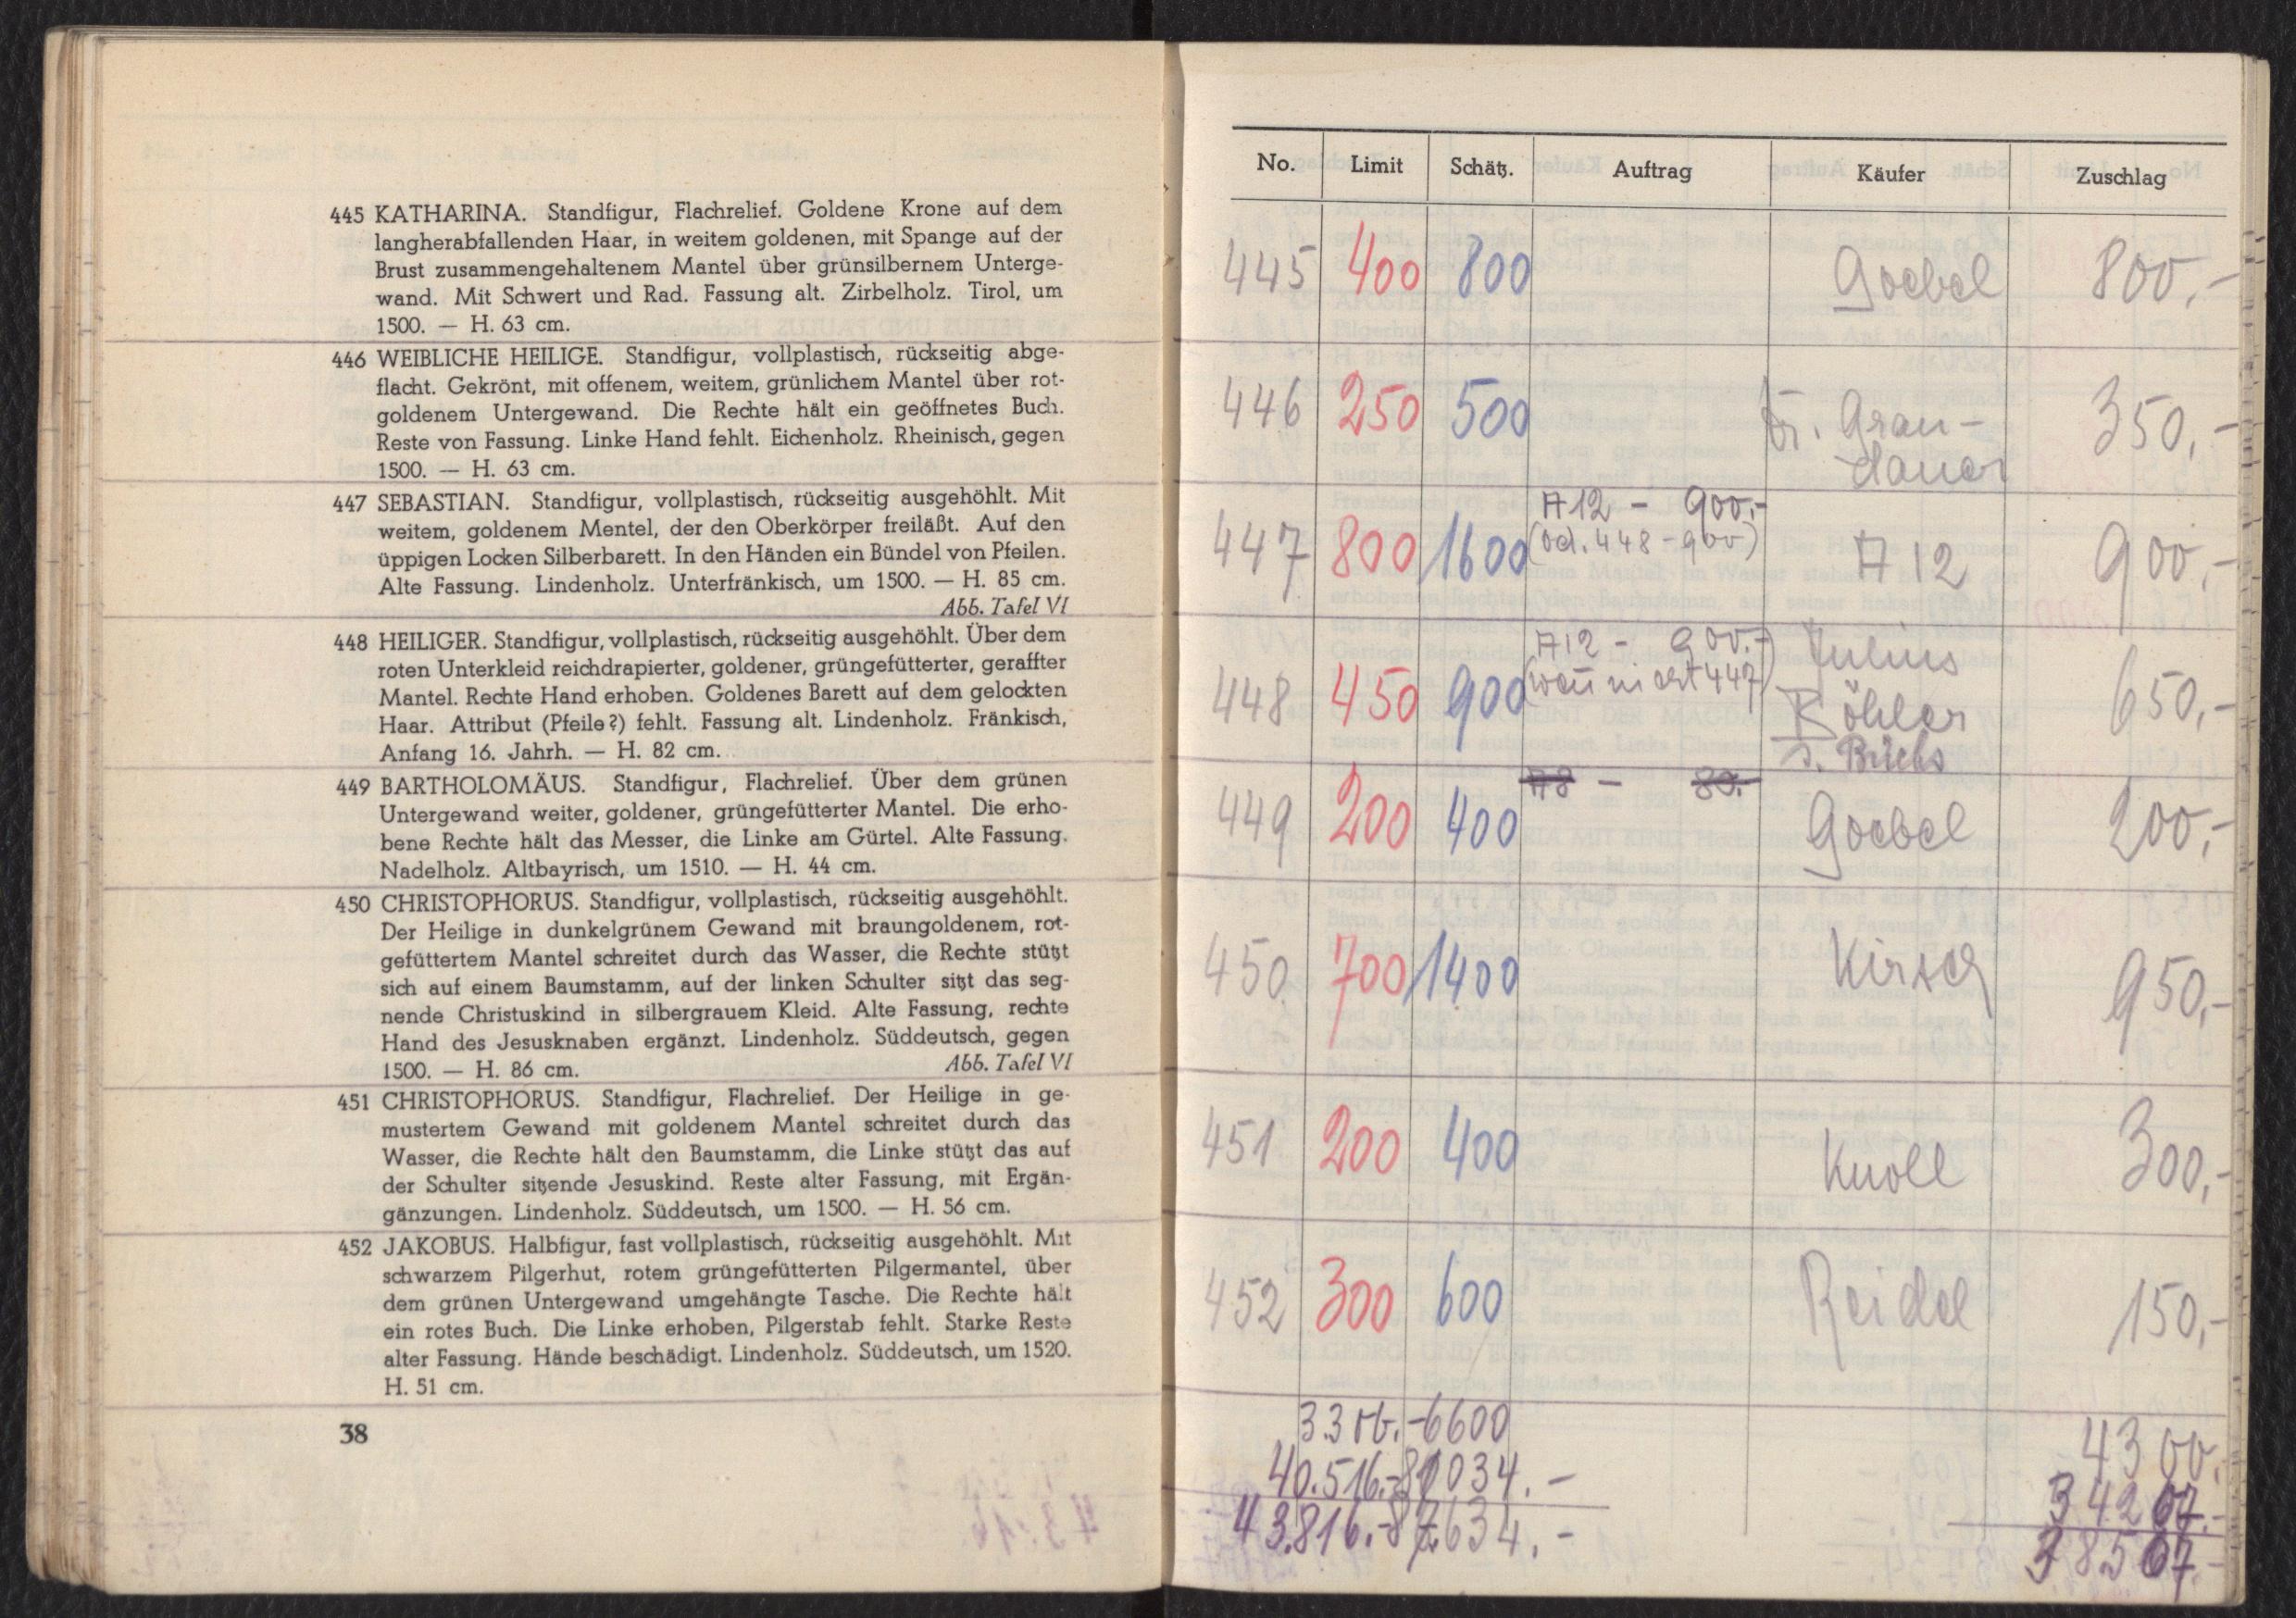 445 KATHARINA. Standfigur, Flachrelief. Goldene Krone auf dem
langherabfallenden Haar, in weitem goldenen, mit Spange auf der
Brust zusammengehaltenem Mantel über grünsilbernem Unterge-
wand. Mit Schwert und Rad. Fassung alt. Zirbelholz. Tirol, um
1500. — H. 63 cm.
446 WEIBLICHE HEILIGE. Standfigur, vollplastisch, rückseitig abge-
flacht. Gekrönt, mit offenem, weitem, grünlichem Mantel über rot-
goldenem Untergewand. Die Rechte hält ein geöffnetes Buch.
Reste von Fassung. Linke Hand fehlt. Eichenholz. Rheinisch, gegen
1500. — H. 63 cm.
447 SEBASTIAN. Standfigur, vollplastisch, rückseitig ausgehöhlt. Mit
weitem, goldenem Mentel, der den Oberkörper freiläßt. Auf den
üppigen Locken Silberbarett. In den Händen ein Bündel von Pfeilen.
Alte Fassung. Lindenholz. Unterfränkisch, um 1500. — H. 85 cm.
Abb. Tafel VI
448 HEILIGER. Standfigur, vollplastisch, rückseitig ausgehöhlt. Über dem
roten Unterkleid reichdrapierter, goldener, grüngefütterter, geraffter
Mantel. Rechte Hand erhoben. Goldenes Barett auf dem gelockten
Haar. Attribut (Pfeile?) fehlt. Fassung alt. Lindenholz. Fränkisch,
Anfang 16. Jahrh. — H. 82 cm.
449 BARTHOLOMÄUS. Standfigur, Flachrelief. Über dem grünen
Untergewand weiter, goldener, grüngefütterter Mantel. Die erho-
bene Rechte hält das Messer, die Linke am Gürtel. Alte Fassung.
Nadelholz. Altbayrisch, um 1510. — H. 44 cm.
450 CHRISTOPHORUS. Standfigur, vollplastisch, rückseitig ausgehöhlt.
Der Heilige in dunkelgrünem Gewand mit braungoldenem, rot-
gefüttertem Mantel schreitet durch das Wasser, die Rechte stützt
sich auf einem Baumstamm, auf der linken Schulter sitzt das seg-
nende Christuskind in silbergrauem Kleid. Alte Fassung, rechte
Hand des Jesusknaben ergänzt. Lindenholz. Süddeutsch, gegen
1500. — H. 86 cm. Abb. Tafel VI
451 CHRISTOPHORUS. Standfigur, Flachrelief. Der Heilige in ge-
mustertem Gewand mit goldenem Mantel schreitet durch das
Wasser, die Rechte hält den Baumstamm, die Linke stützt das auf
der Schulter sitzende Jesuskind. Reste alter Fassung, mit Ergän-
gänzungen. Lindenholz. Süddeutsch, um 1500. — H. 56 cm.
452 JAKOBUS. Halbfigur, fast vollplastisch, rückseitig ausgehöhlt. Mit
schwarzem Pilgerhut, rotem grüngefütterten Pilgermantel, über
dem grünen Untergewand umgehängte Tasche. Die Rechte hält
ein rotes Buch. Die Linke erhoben, Pilgerstab fehlt. Starke Reste
alter Fassung. Hände beschädigt. Lindenholz. Süddeutsch, um 1520.
H. 51 cm.
38
No. Limit Schätz. Auftrag Käufer Zuschlag
445 400 800 Goebel 800,-
446 250 500 Dr. Grau-
dauer 350,-
A12 - 900.-
(od. 448 - 900)
447 800 1600 A 12 900,-
A12 - 900.-
(wen̄ nicht 447)
448 450 900 Julius
Böhler 650,-
A8 - 80.-
449 200 400 Goebel 200,-
450 700 1400 Kirsch 950,-
451 200 400 Knoll 300,-
452 300 600 Reidel 150,-
3.300.- 6600 4300.
40.516.- 81034.- 34267.-
43.816.- 87.634.- 38567.-